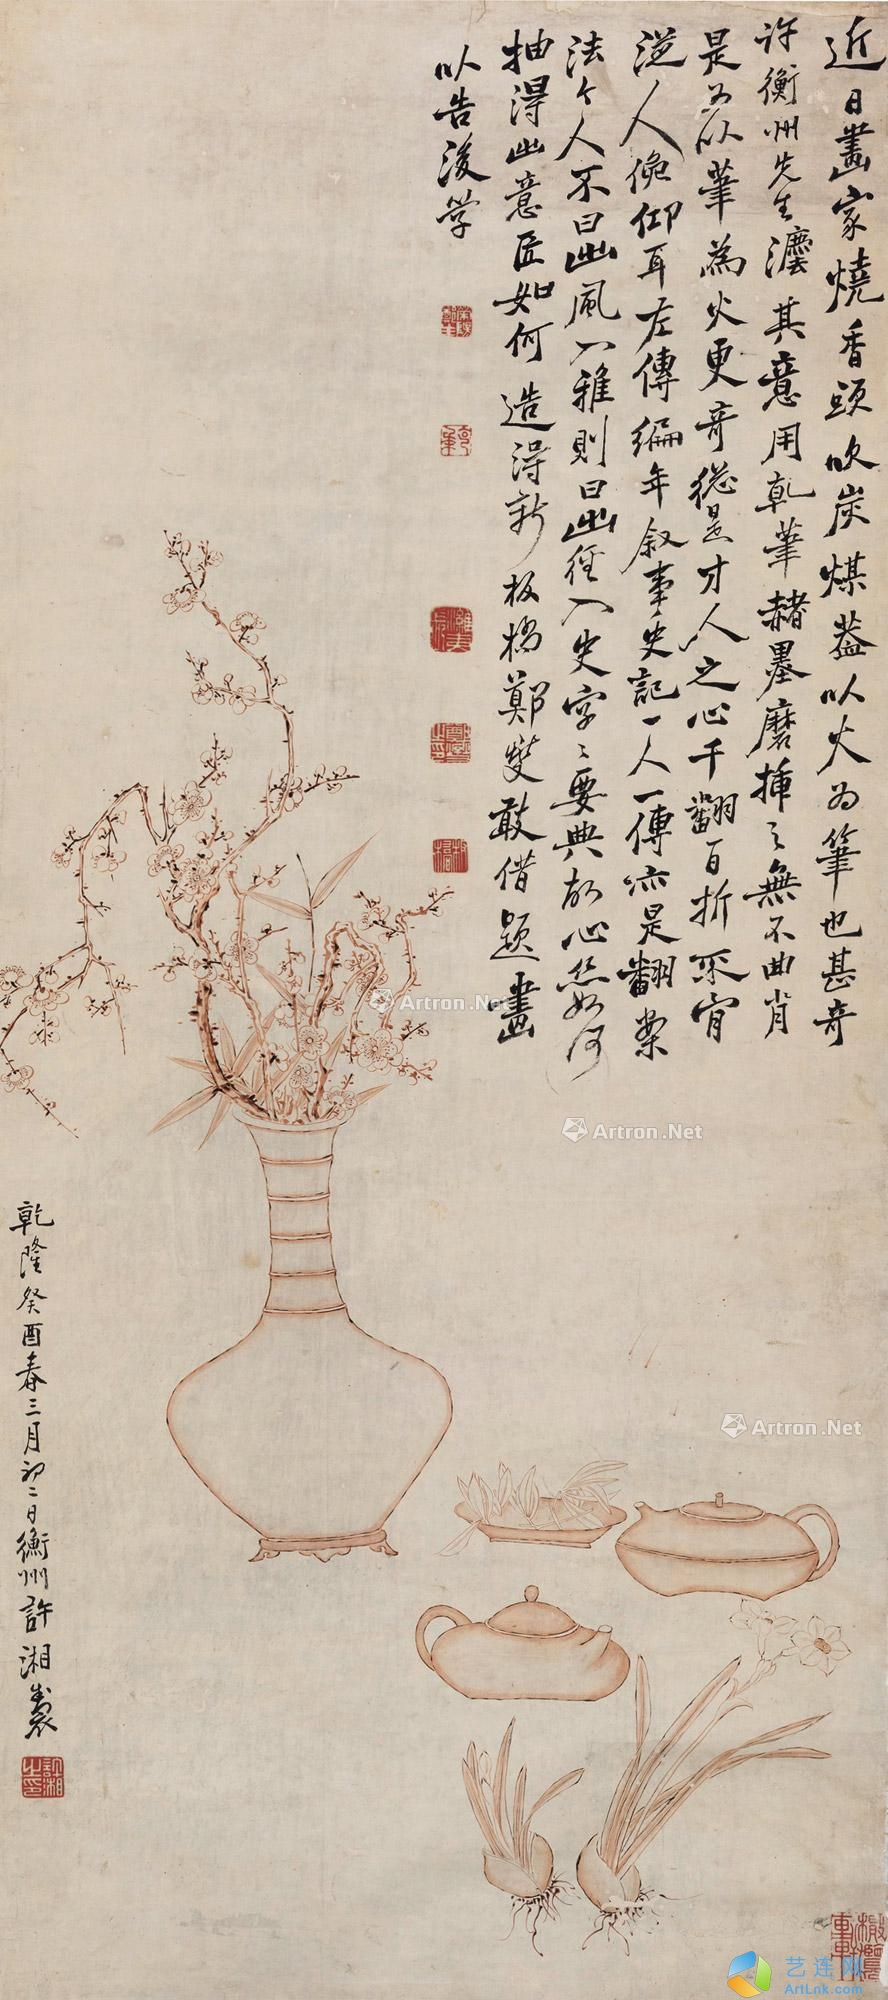 近日畫家燒香頭吹炭煤蓋以火為筆也甚奇
許衡州先生灋其意用乾筆赭墨磨揷之無不曲肖
是為以筆為火更奇總是才人之心千翻百折不肯
從人俛仰耳左傳編年叙事史記一人一傳亦是翻案
法今人不曰出風入雅則曰出經入史字字要典故心絲如何
抽得出意匠如何造得新板橋鄭燮敢借題畫
以告後學
乾隆癸酉春三月初二日衡州許湘製
許湘之印
鄭燮之印
Artron.Net
Artron.Net
Artron.Net
艺连网
ArtLnk.com